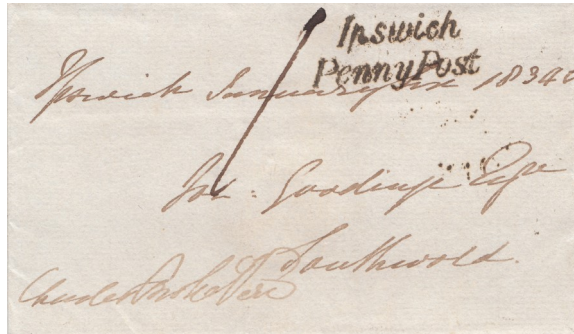 Ipswich
Penny Post
Ipswich January six 1834
Jno. Gooding Esqre
Southwold.
Charles